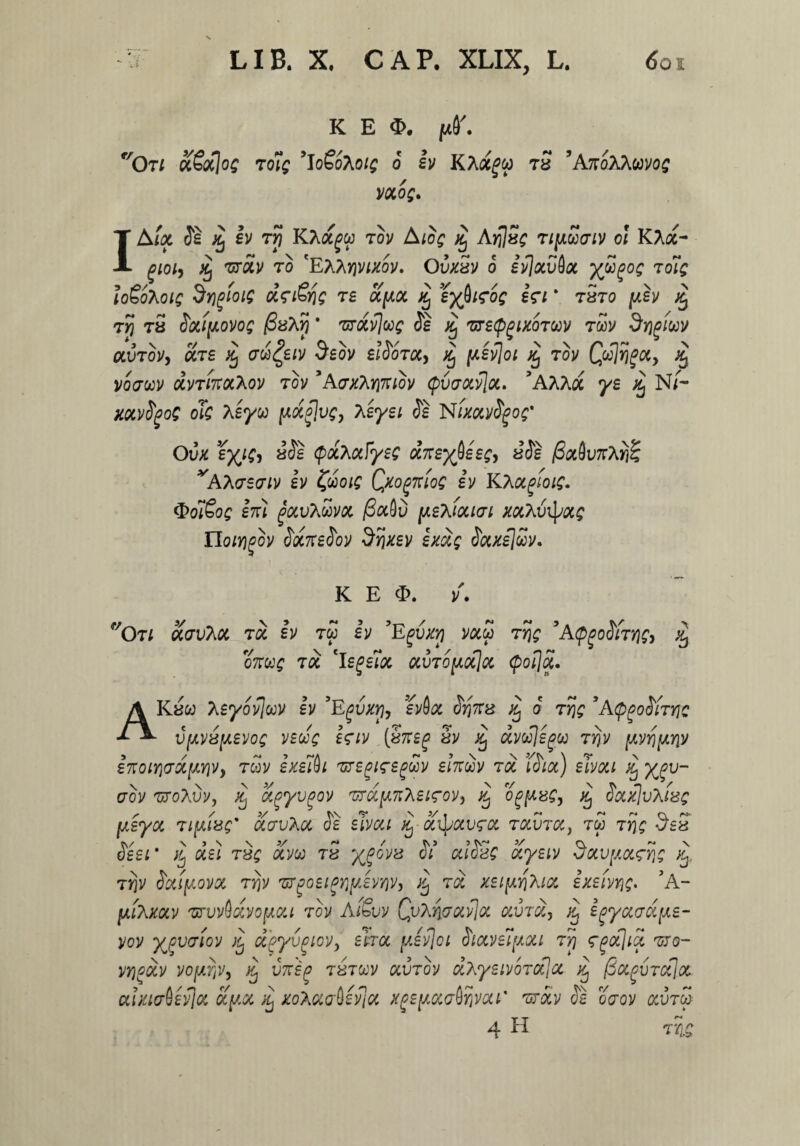 LIB. X. CAP. XLIX, L. 601
ΚΕΦ. μθʹ.
Ὅτι ἄβατος τοῖς Ἰοβόλοις ὁ ἐν Κλάρῳ τȣ̃ Ἀπόλλωνος
ναός.
ΙΔία δὲ ϗ ἐν τῇ Κλάρῳ τὸν Διὸς ϗ Λητȣ̃ς τιμῶσιν οἱ Κλά-
ριοι, ϗ πᾶν τὸ Ἑλληνικόν. Οὐκȣ̃ν ὁ ἐνταῦθα χῶρος τοῖς
ἰοβόλοις θηρίοις ἀϛιβής τε ἅμα ϗ ἔχθιϛός ἐϛι· τȣ̃το μὲν ϗ
τῇ τȣ̃ δαίμονος βȣλῇ· πάντως δὲ ϗ πεφρικότων τῶν θηρίων
αὐτὸν, ἅτε ϗ σώζειν θεὸν εἰδότα, ϗ μέντοι ϗ τὸν Σωτῆρα, ϗ
νόσων ἀντίπαλον τὸν Ἀσκληπιὸν φύσαντα. Ἀλλά γε ϗ Νί-
κανδρος οἷς λέγω μάρτυς, λέγει δὲ Νίκανδρος·
Οὐκ ἔχις, ȣ̓δὲ φάλαγγες ἀπεχθέες, ȣ̓δὲ βαθυπλὴξ
Ἄλσεσιν ἐν ζώοις Σκορπίος ἐν Κλαρίοις.
Φοῖβος ἐπὶ ῥαυλῶνα βαθὺ μελίαισι καλύψας
Ποιηρὸν δάπεδον θῆκεν ἑκὰς δακετῶν.
ΚΕΦ. νʹ.
Ὅτι ἄσυλα τὰ ἐν τῷ ἐν Ἐρύκῃ ναῷ τῆς Ἀφροδίτης, ϗ
ὅπως τὰ Ἱερεῖα αὐτόματα φοιτᾷ.
ΑΚȣ́ω λεγόντων ἐν Ἐρύκῃ, ἔνθα δήπȣ ϗ ὁ τῆς Ἀφροδίτης
ὑμνȣ́μενος νεώς ἐϛιν (ȣ̔͂περ ȣ̓͂ν ϗ ἀνωτέρω τὴν μνήμην
ἐποιησάμην, τῶν ἐκεῖθι περιϛερῶν εἰπὼν τὰ ἴδια) εἶναι ϗ χρυ-
σὸν πολὺν, ϗ ἄργυρον πάμπλειϛον, ϗ ὅρμȣς, ϗ δακτυλίȣς
μέγα τιμίȣς· ἄσυλα δὲ εἶναι ϗ ἄψαυϛα ταῦτα, τῷ τῆς θεȣ̃
δέει· ϗ ἀεὶ τȣ̀ς ἄνω τȣ̃ χρόνȣ δι' αἰδȣ̃ς ἄγειν θαυμαϛῆς ϗ
τὴν δαίμονα τὴν προειρημένην, ϗ τὰ κειμήλια ἐκείνης. Ἀ-
μίλκαν πυνθάνομαι τὸν Λίβυν Συλήσαντα αὐτὰ, ϗ ἐργασάμε-
νον χρυσίον ϗ ἀργύριον, εἶτα μέντοι διανεῖμαι τῇ ϛρατιᾷ πο-
νηρὰν νομὴν, ϗ ὑπὲρ τȣ́των αὐτὸν ἀλγεινότατα ϗ βαρύτατα
αἰκισθέντα ἅμα ϗ κολασθέντα κρεμασθῆναι· πᾶν δὲ ὅσον αὐτῷ
4 H τῆς